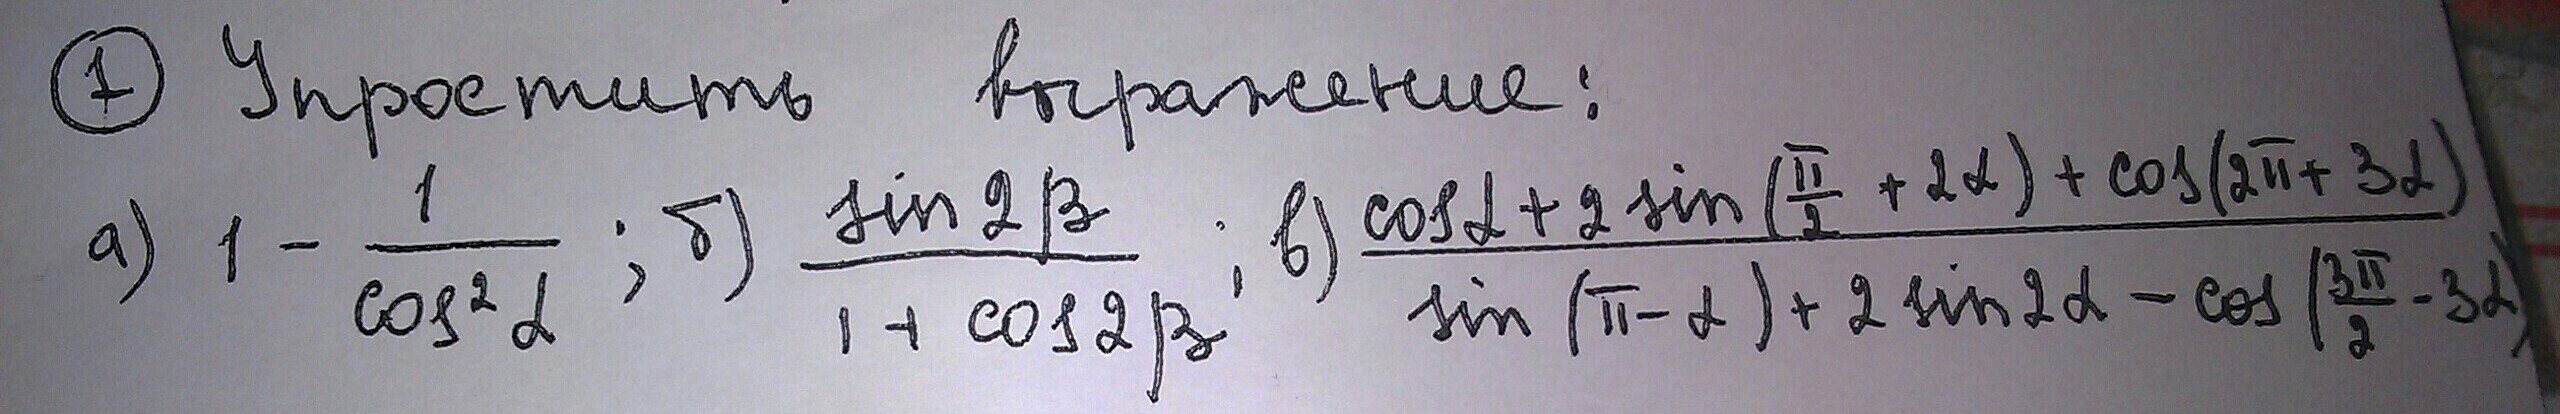 ① Упростить выражение:
а) 1 - \frac{1}{cos²α} ; б) \frac{sin 2β}{1 + cos 2β} ; в) \frac{cosα + 2 sin(\frac{π}{2} + 2α) + cos(2π + 3α)}{sin(π - α) + 2 sin 2α - cos(\frac{3π}{2} - 3α)}